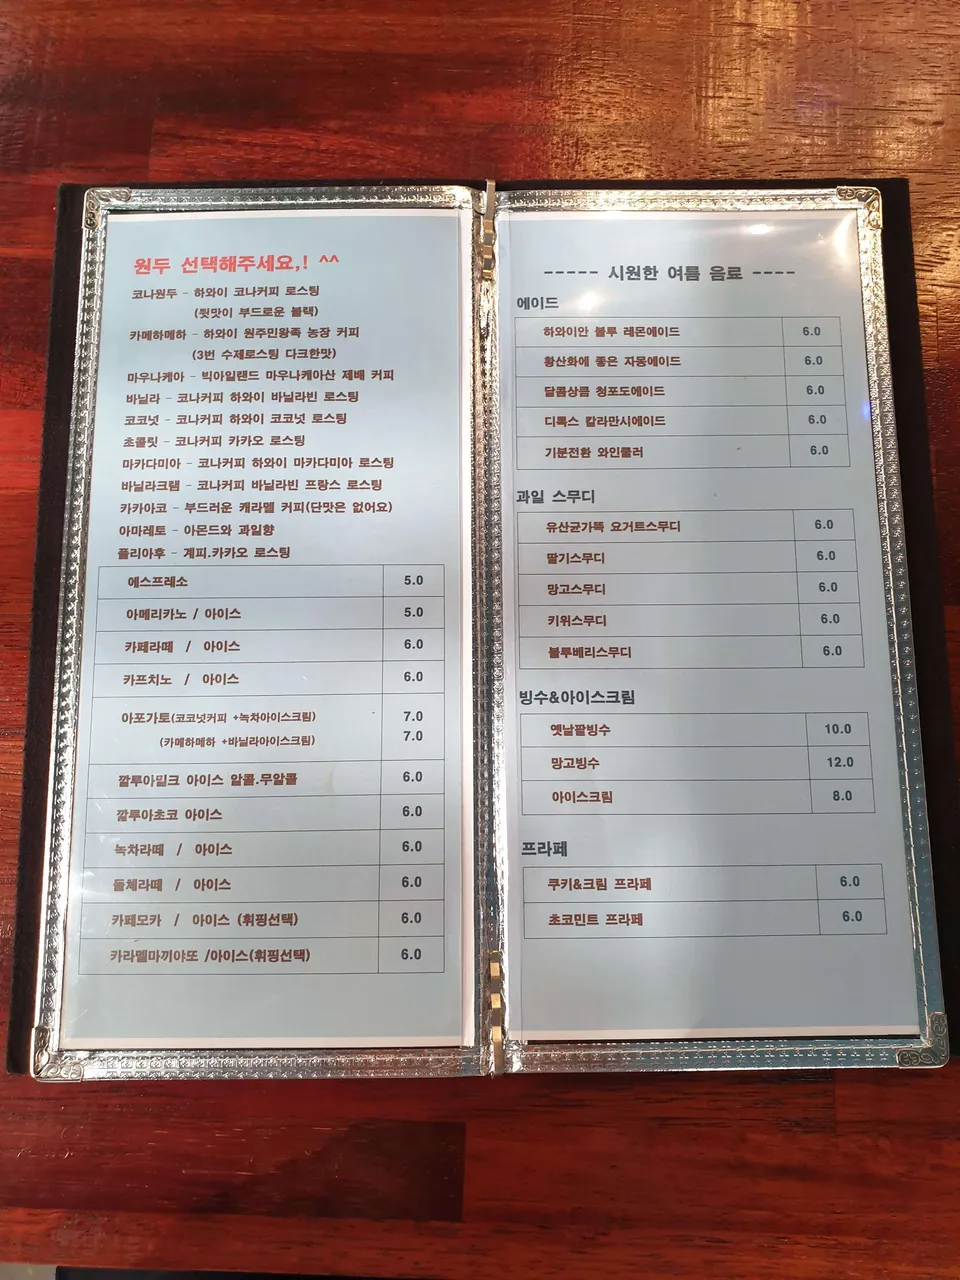 원두 선택해주세요,! ^^
코나원두 - 하와이 코나커피 로스팅
(뒷맛이 부드로운 블랙)
카메하메하 - 하와이 원주민왕족 농장 커피
(3번 수제로스팅 다크한맛)
마우나케아 - 빅아일랜드 마우나케아산 제배 커피
바닐라 - 코나커피 하와이 바닐라빈 로스팅
코코넛 - 코나커피 하와이 코코넛 로스팅
초콜릿 - 코나커피 카카오 로스팅
마카다미아 - 코나커피 하와이 마카다미아 로스팅
바닐라크램 - 코나커피 바닐라빈 프랑스 로스팅
카카아코 - 부드러운 캐라멜 커피(단맛은 없어요)
아마레토 - 아몬드와 과일향
풀리아후 - 계피.카카오 로스팅
에스프레소 5.0
아메리카노 / 아이스 5.0
카페라떼 / 아이스 6.0
카프치노 / 아이스 6.0
아포가토(코코넛커피 +녹차아이스크림) 7.0
(카메하메하 +바닐라아이스크림) 7.0
깔루아밀크 아이스 알콜.무알콜 6.0
깔루아초코 아이스 6.0
녹차라떼 / 아이스 6.0
돌체라떼 / 아이스 6.0
카페모카 / 아이스 (휘핑선택) 6.0
카라멜마끼야또 /아이스(휘핑선택) 6.0
----- 시원한 여름 음료 ----
에이드
하와이안 블루 레몬에이드 6.0
황산화에 좋은 자몽에이드 6.0
달콤상큼 청포도에이드 6.0
디톡스 칼라만시에이드 6.0
기분전환 와인쿨러 6.0
과일 스무디
유산균가뜩 요거트스무디 6.0
딸기스무디 6.0
망고스무디 6.0
키위스무디 6.0
블루베리스무디 6.0
빙수&아이스크림
옛날팥빙수 10.0
망고빙수 12.0
아이스크림 8.0
프라페
쿠키&크림 프라페 6.0
초코민트 프라페 6.0